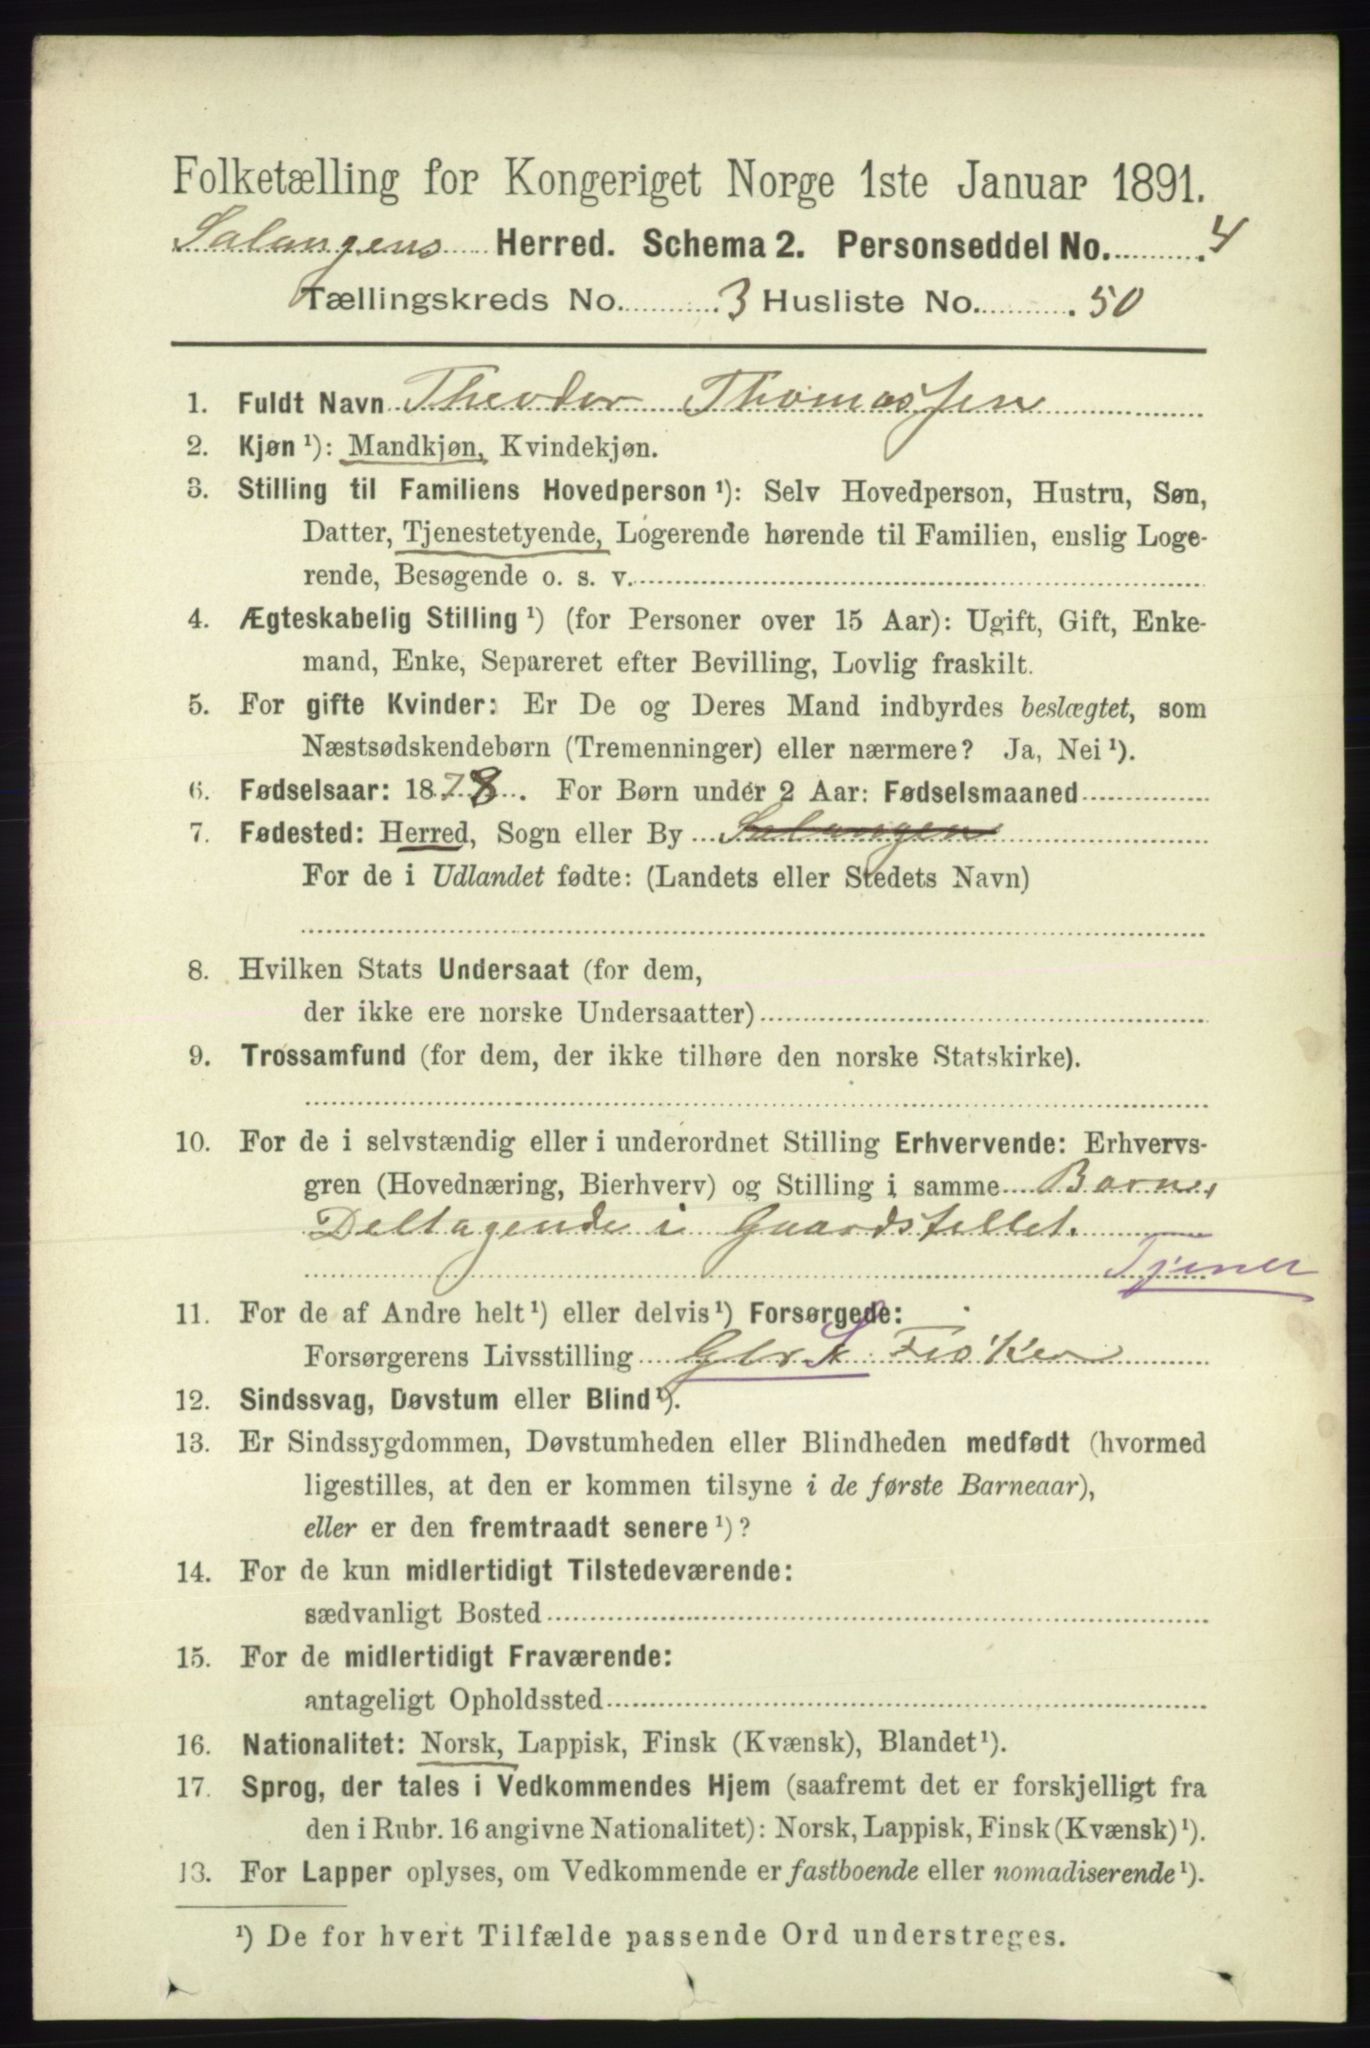 Folketælling for Kongeriget Norge 1ste Januar 1891.
Salangens Herred. Schema 2. Personseddel No. 4
Tællingskreds No. 3 Husliste No. 50
1. Fuldt Navn Theodor Thomassen
2. Kjøn ¹): Mandkjøn, Kvindekjøn.
3. Stilling til Familiens Hovedperson ¹): Selv Hovedperson, Hustru, Søn,
Datter, Tjenestetyende, Logerende hørende til Familien, enslig Loge-
rende, Besøgende o. s. v.
4. Ægteskabelig Stilling ¹) (for Personer over 15 Aar): Ugift, Gift, Enke-
mand, Enke, Separeret efter Bevilling, Lovlig fraskilt.
5. For gifte Kvinder: Er De og Deres Mand indbyrdes beslægtet, som
Næstsødskendebørn (Tremenninger) eller nærmere? Ja, Nei ¹).
6. Fødselsaar: 1878. For Børn under 2 Aar: Fødselsmaaned
7. Fødested: Herred, Sogn eller By Salangen
For de i Udlandet fødte: (Landets eller Stedets Navn)
8. Hvilken Stats Undersaat (for dem,
der ikke ere norske Undersaatter)
9. Trossamfund (for dem, der ikke tilhøre den norske Statskirke).
10. For de i selvstændig eller i underordnet Stilling Erhvervende: Erhvervs-
gren (Hovednæring, Bierhverv) og Stilling i samme Barn,
Deltagende i Gaardstellet.
Tjener
11. For de af Andre helt ¹) eller delvis ¹) Forsørgede:
Forsørgerens Livsstilling Fisker
12. Sindssvag, Døvstum eller Blind ¹).
13. Er Sindssygdommen, Døvstumheden eller Blindheden medfødt (hvormed
ligestilles, at den er kommen tilsyne i de første Barneaar),
eller er den fremtraadt senere ¹)?
14. For de kun midlertidigt Tilstedeværende:
sædvanligt Bosted
15. For de midlertidigt Fraværende:
antageligt Opholdssted
16. Nationalitet: Norsk, Lappisk, Finsk (Kvænsk), Blandet ¹).
17. Sprog, der tales i Vedkommendes Hjem (saafremt det er forskjelligt fra
den i Rubr. 16 angivne Nationalitet): Norsk, Lappisk, Finsk (Kvænsk) ¹).
13. For Lapper oplyses, om Vedkommende er fastboende eller nomadiserende ¹).
¹) De for hvert Tilfælde passende Ord understreges.